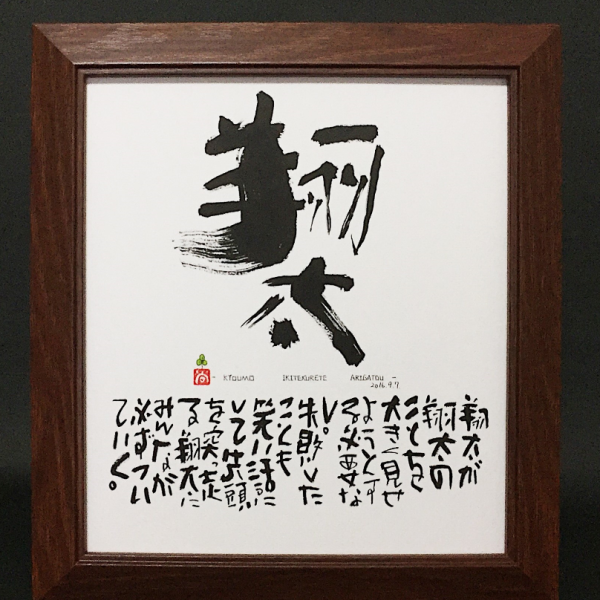 翔太
尚
- KYOUMO IKITEKURETE ARIGATOU -
2016.9.7
翔太が
翔太の
ことを
大きく見せ
ようとす
る必要な
し。
失敗した
ことも
笑い話に
して先頭
を突っ走
る翔太に
みんなが
必ずつい
ていく。